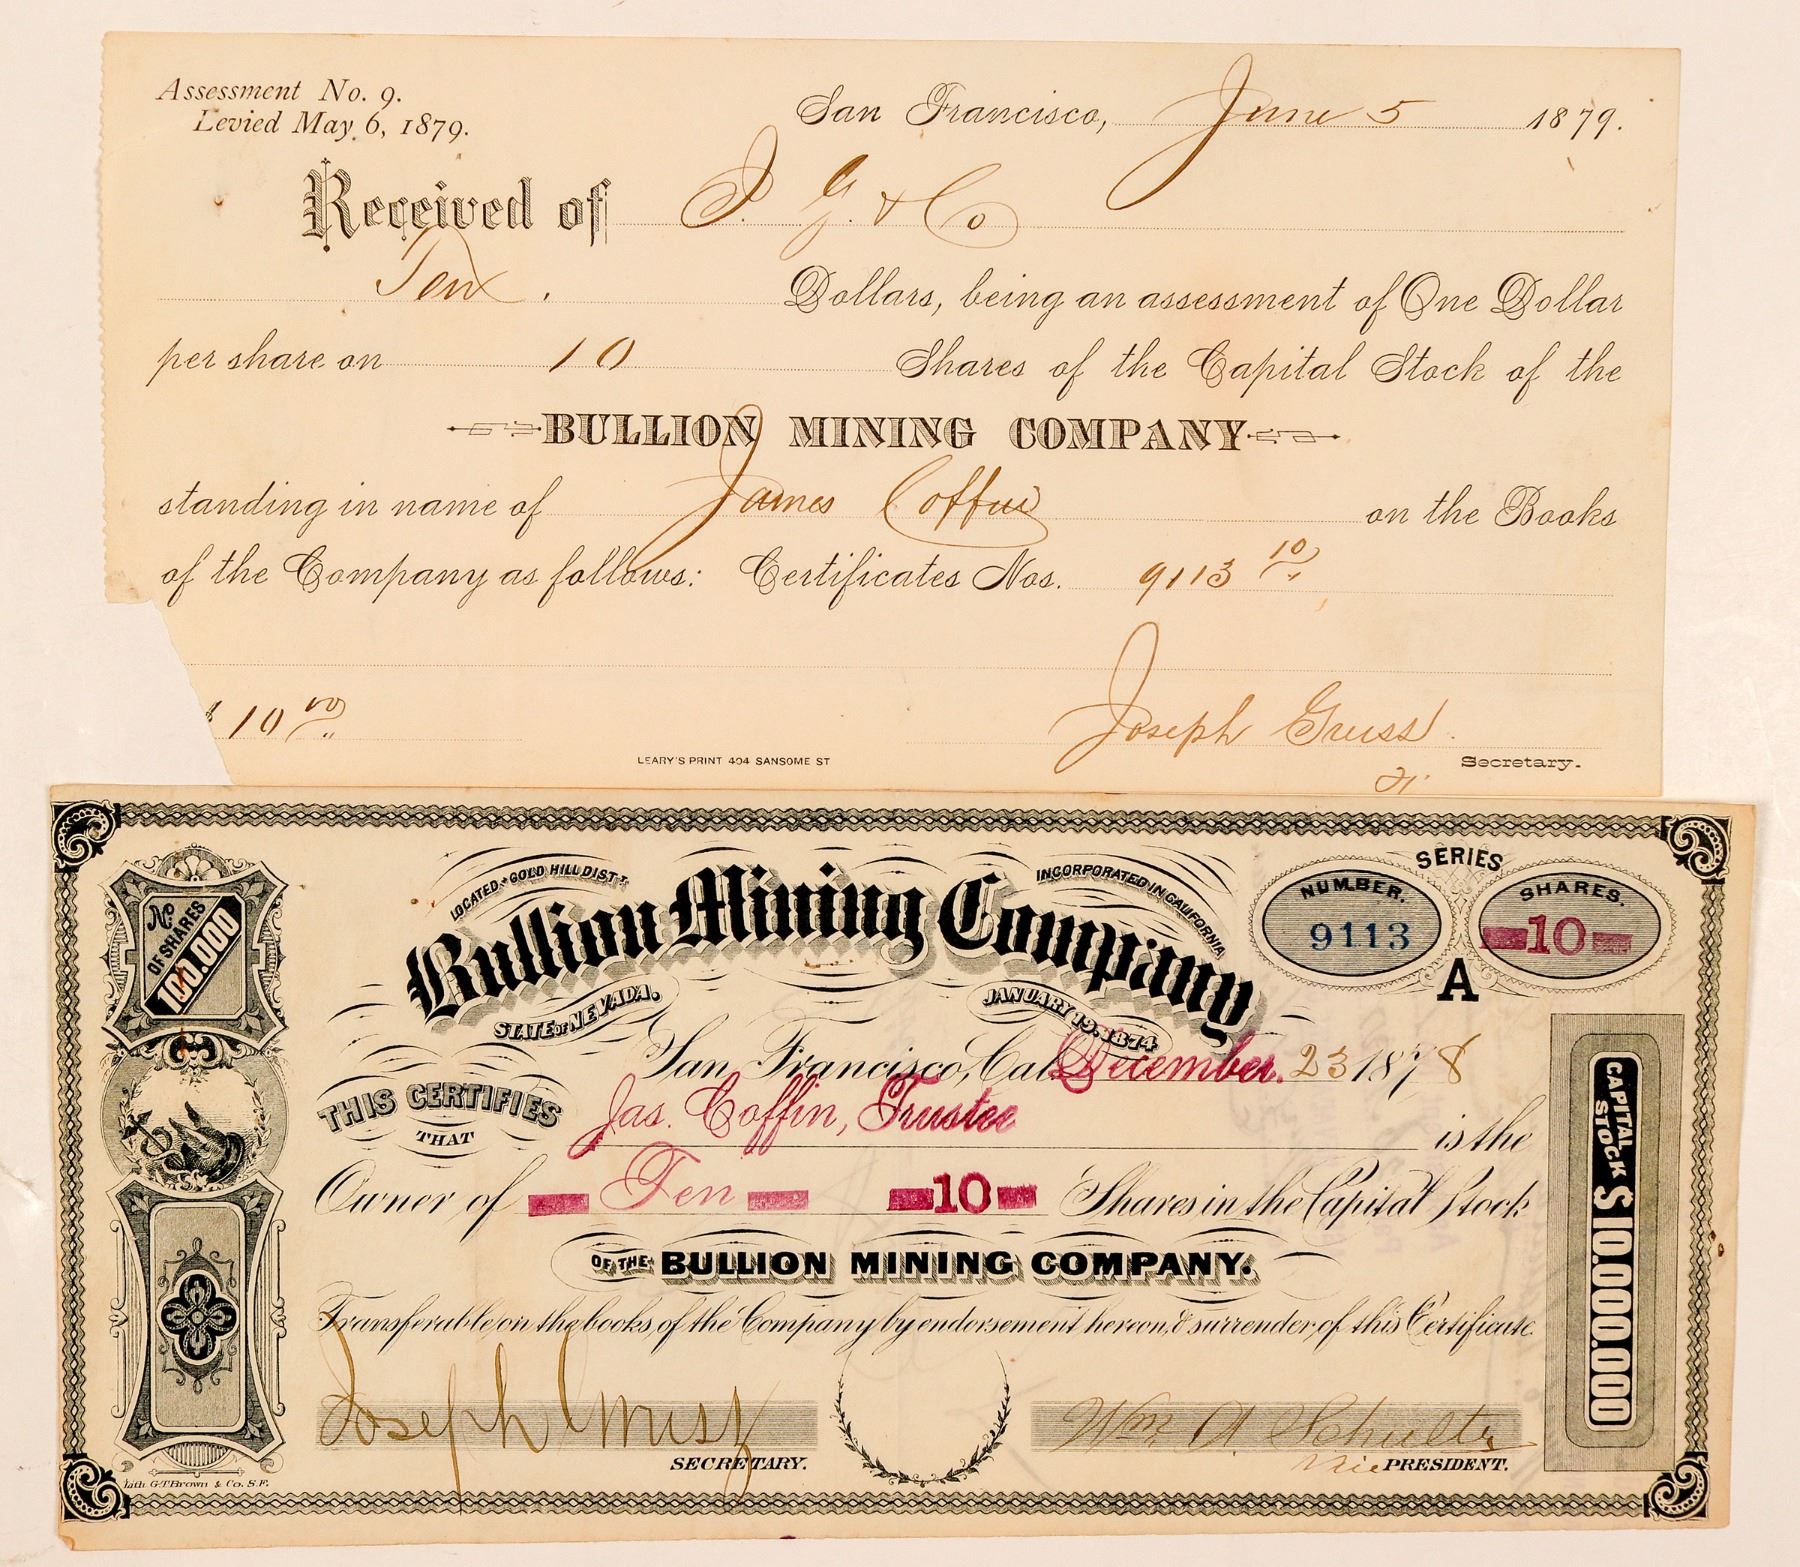 Assessment No. 9.
Levied May 6, 1879.
San Francisco, June 5 1879.
Received of J. G. & Co
Ten. Dollars, being an assessment of One Dollar
per share on 10 Shares of the Capital Stock of the
BULLION MINING COMPANY
standing in name of James Coffin on the Books
of the Company as follows: Certificates Nos. 9113 10/"
$ 10 00/"
Joseph Gruss.
LEARY'S PRINT 404 SANSOME ST
Secretary.
No OF SHARES 100.000
LOCATED GOLD HILL DIST.
INCORPORATED IN CALIFORNIA
Bullion Mining Company
STATE OF NEVADA.
JANUARY 19. 1874
SERIES
NUMBER.
9113
A
SHARES.
10
San Francisco, Cal. December. 23 1878
THIS CERTIFIES
THAT
Jas. Coffin, Trustee is the
Owner of Ten 10 Shares in the Capital Stock
OF THE BULLION MINING COMPANY.
Transferable on the books of the Company by endorsement hereon, & surrender of this Certificate.
Joseph Gruss
SECRETARY.
Wm. A. Schultz
Vice PRESIDENT.
CAPITAL STOCK $10.000.000
Lith. G.T. Brown & Co. S.F.